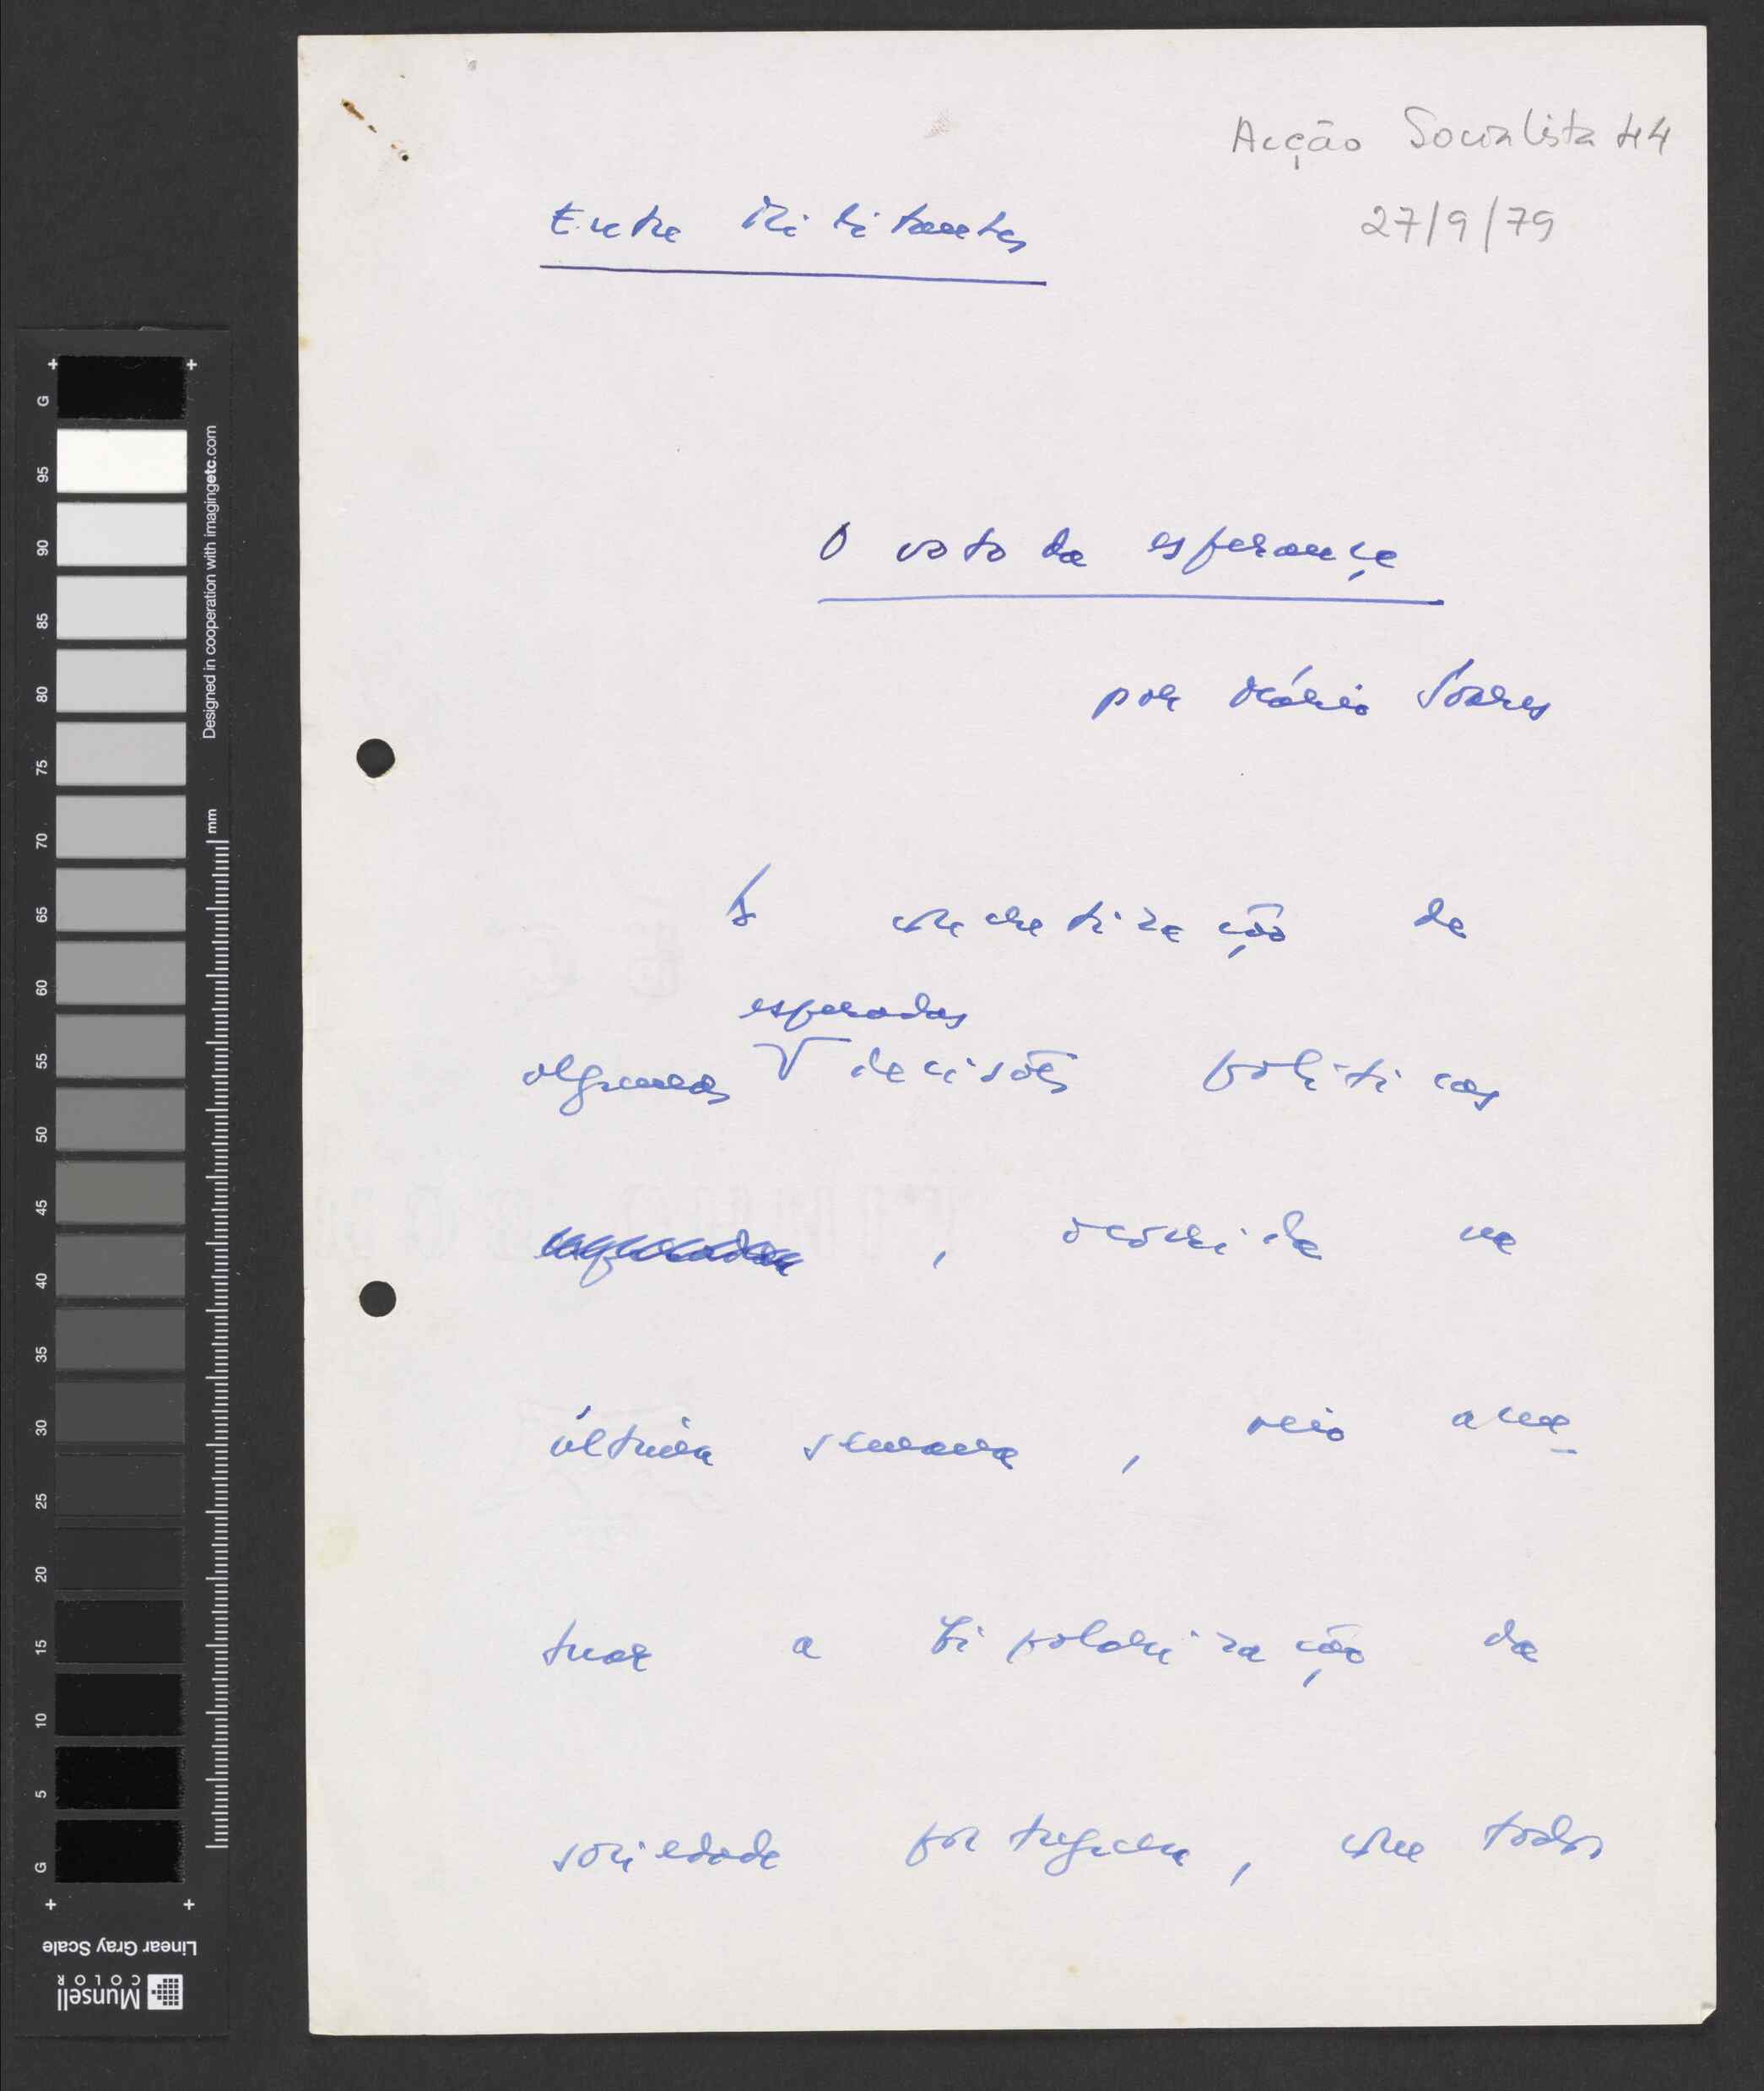 Acção Socialista 44
27/9/79
Entre Militantes
O voto da esperança
por Mário Soares
A concretização de
esperadas
algumas decisões políticas
, ocorrida na
última semana, veio acen-
tuar a bipolarização da
sociedade portuguesa, com todos
G
95
90
85
80
75
70
65
60
55
50
45
40
35
30
25
20
15
10
5
G
Designed in cooperation with imagingetc.com
mm
Linear Gray Scale
Munsell
COLOR